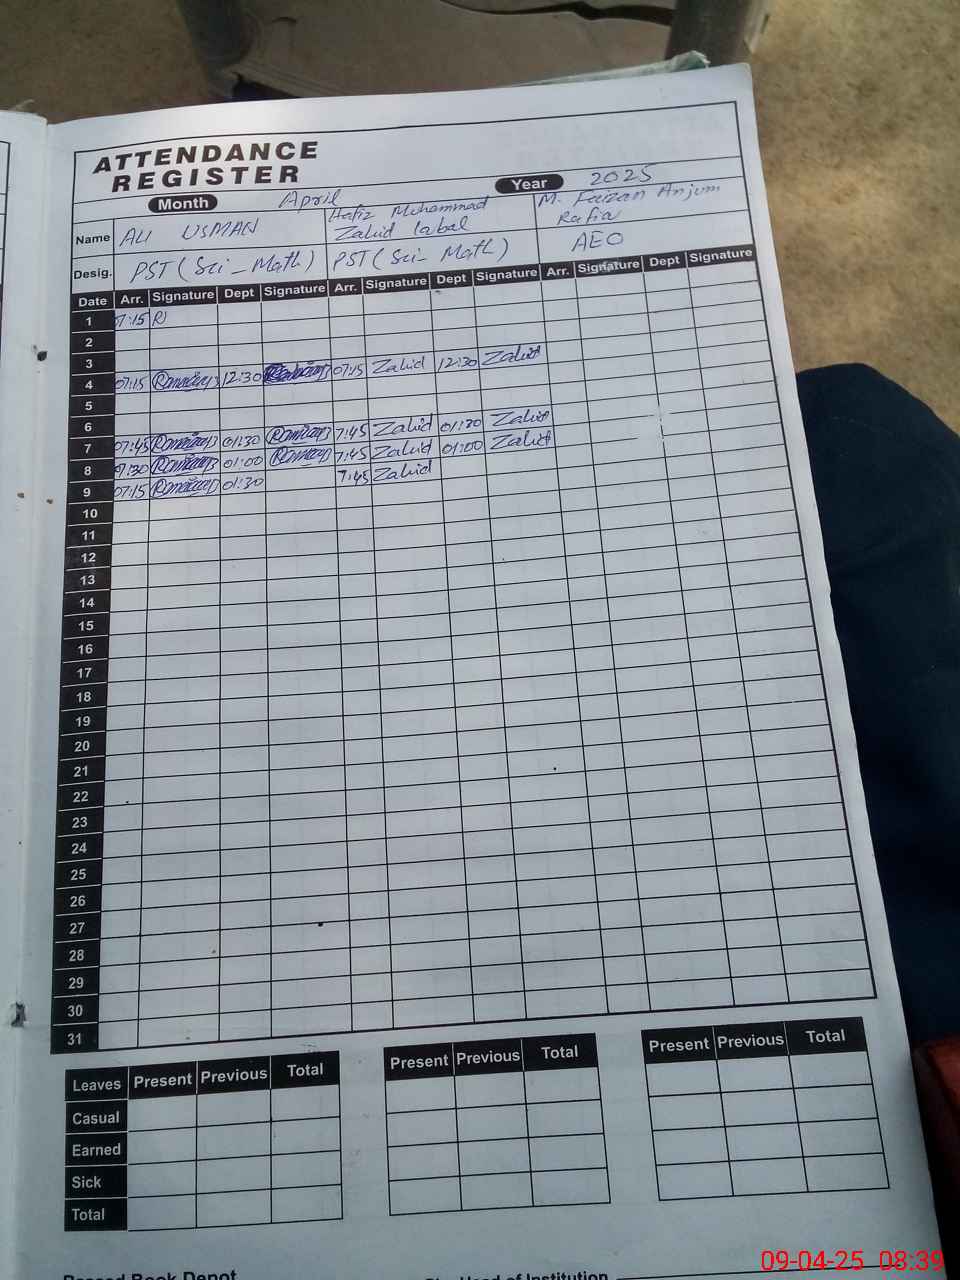 ATTENDANCE
REGISTER
Month April Year 2025
Name ALI USMAN Hafiz Muhammad Zahid Iqbal M. Faizan Anjum Rafia
Desig. PST (Sci - Math) PST (Sci - Math) AEO
Date Arr. Signature Dept Signature Arr. Signature Dept Signature Arr. Signature Dept Signature
1 07:15
2
3
4 07:15 12:30 07:15 Zahid 12:30 Zahid
5
6
7 07:45 01:30 7:45 Zahid Zahid
8 01:00 7:45 Zahid 01:00 Zahid
9 07:15 01:30 7:45 Zahid
10
11
12
13
14
15
16
17
18
19
20
21
22
23
24
25
26
27
28
29
30
31
Leaves Present Previous Total Present Previous Total Present Previous Total
Casual
Earned
Sick
Total
Book Depot Head of Institution
09-04-25 08:39